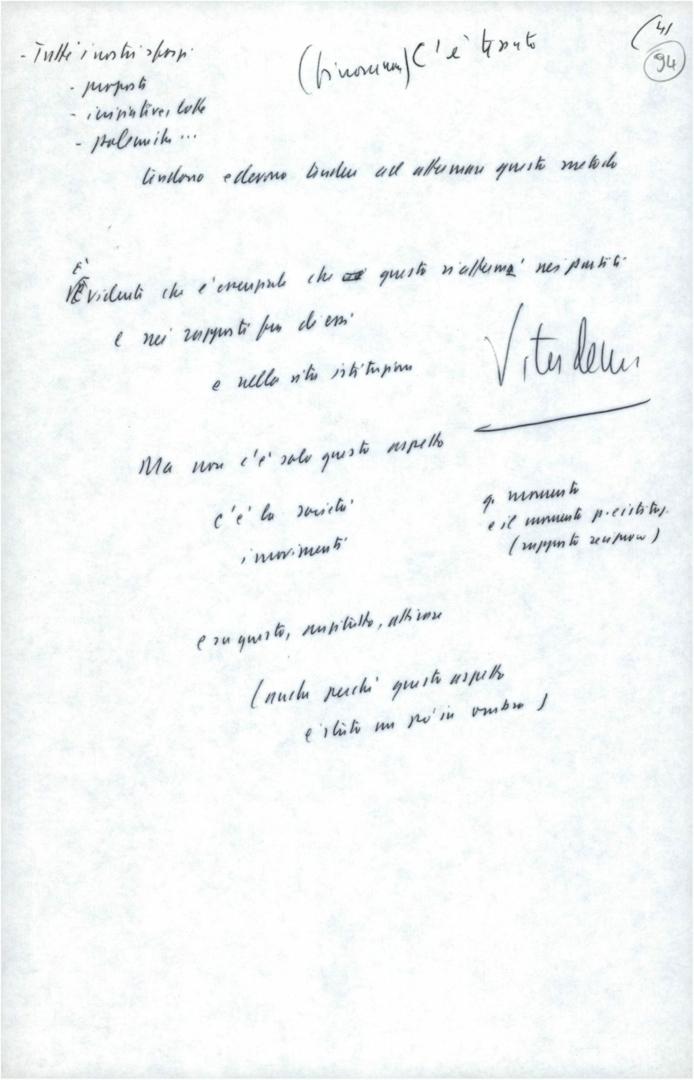 - Tutti i nostri sforzi
- proposte
- iniziative, lotte
- polemiche ...
C'è
41
94
tendono e devono tendere ad affermare questo metodo
È
Evidente che è essenziale che questo si affermi nei partiti
e nei rapporti fra di essi
e nella vita istituzion
Ma non c'è solo questo aspetto
c'è la società
i movimenti
q. momento
e il momento p. e istituz.
(rapporto reciproco)
e su questo, soprattutto, attirare
(anche perché questo aspetto
è stato un po' in ombra)